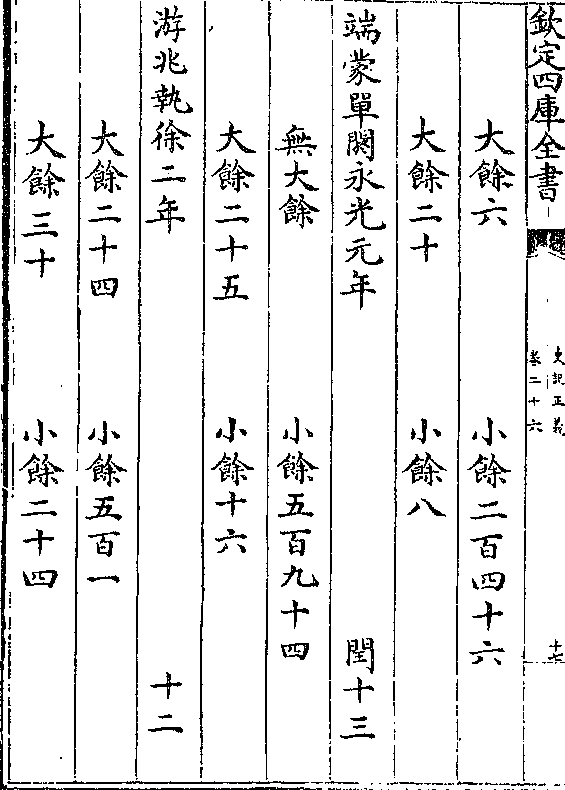 欽定四庫全書
史記正義
卷二十六
十七
大餘六 小餘二百四十六
大餘二十 小餘八
端蒙單閼永光元年 閏十三
無大餘 小餘五百九十四
大餘二十五 小餘十六
游兆執徐二年 十二
大餘二十四 小餘五百一
大餘三十 小餘二十四